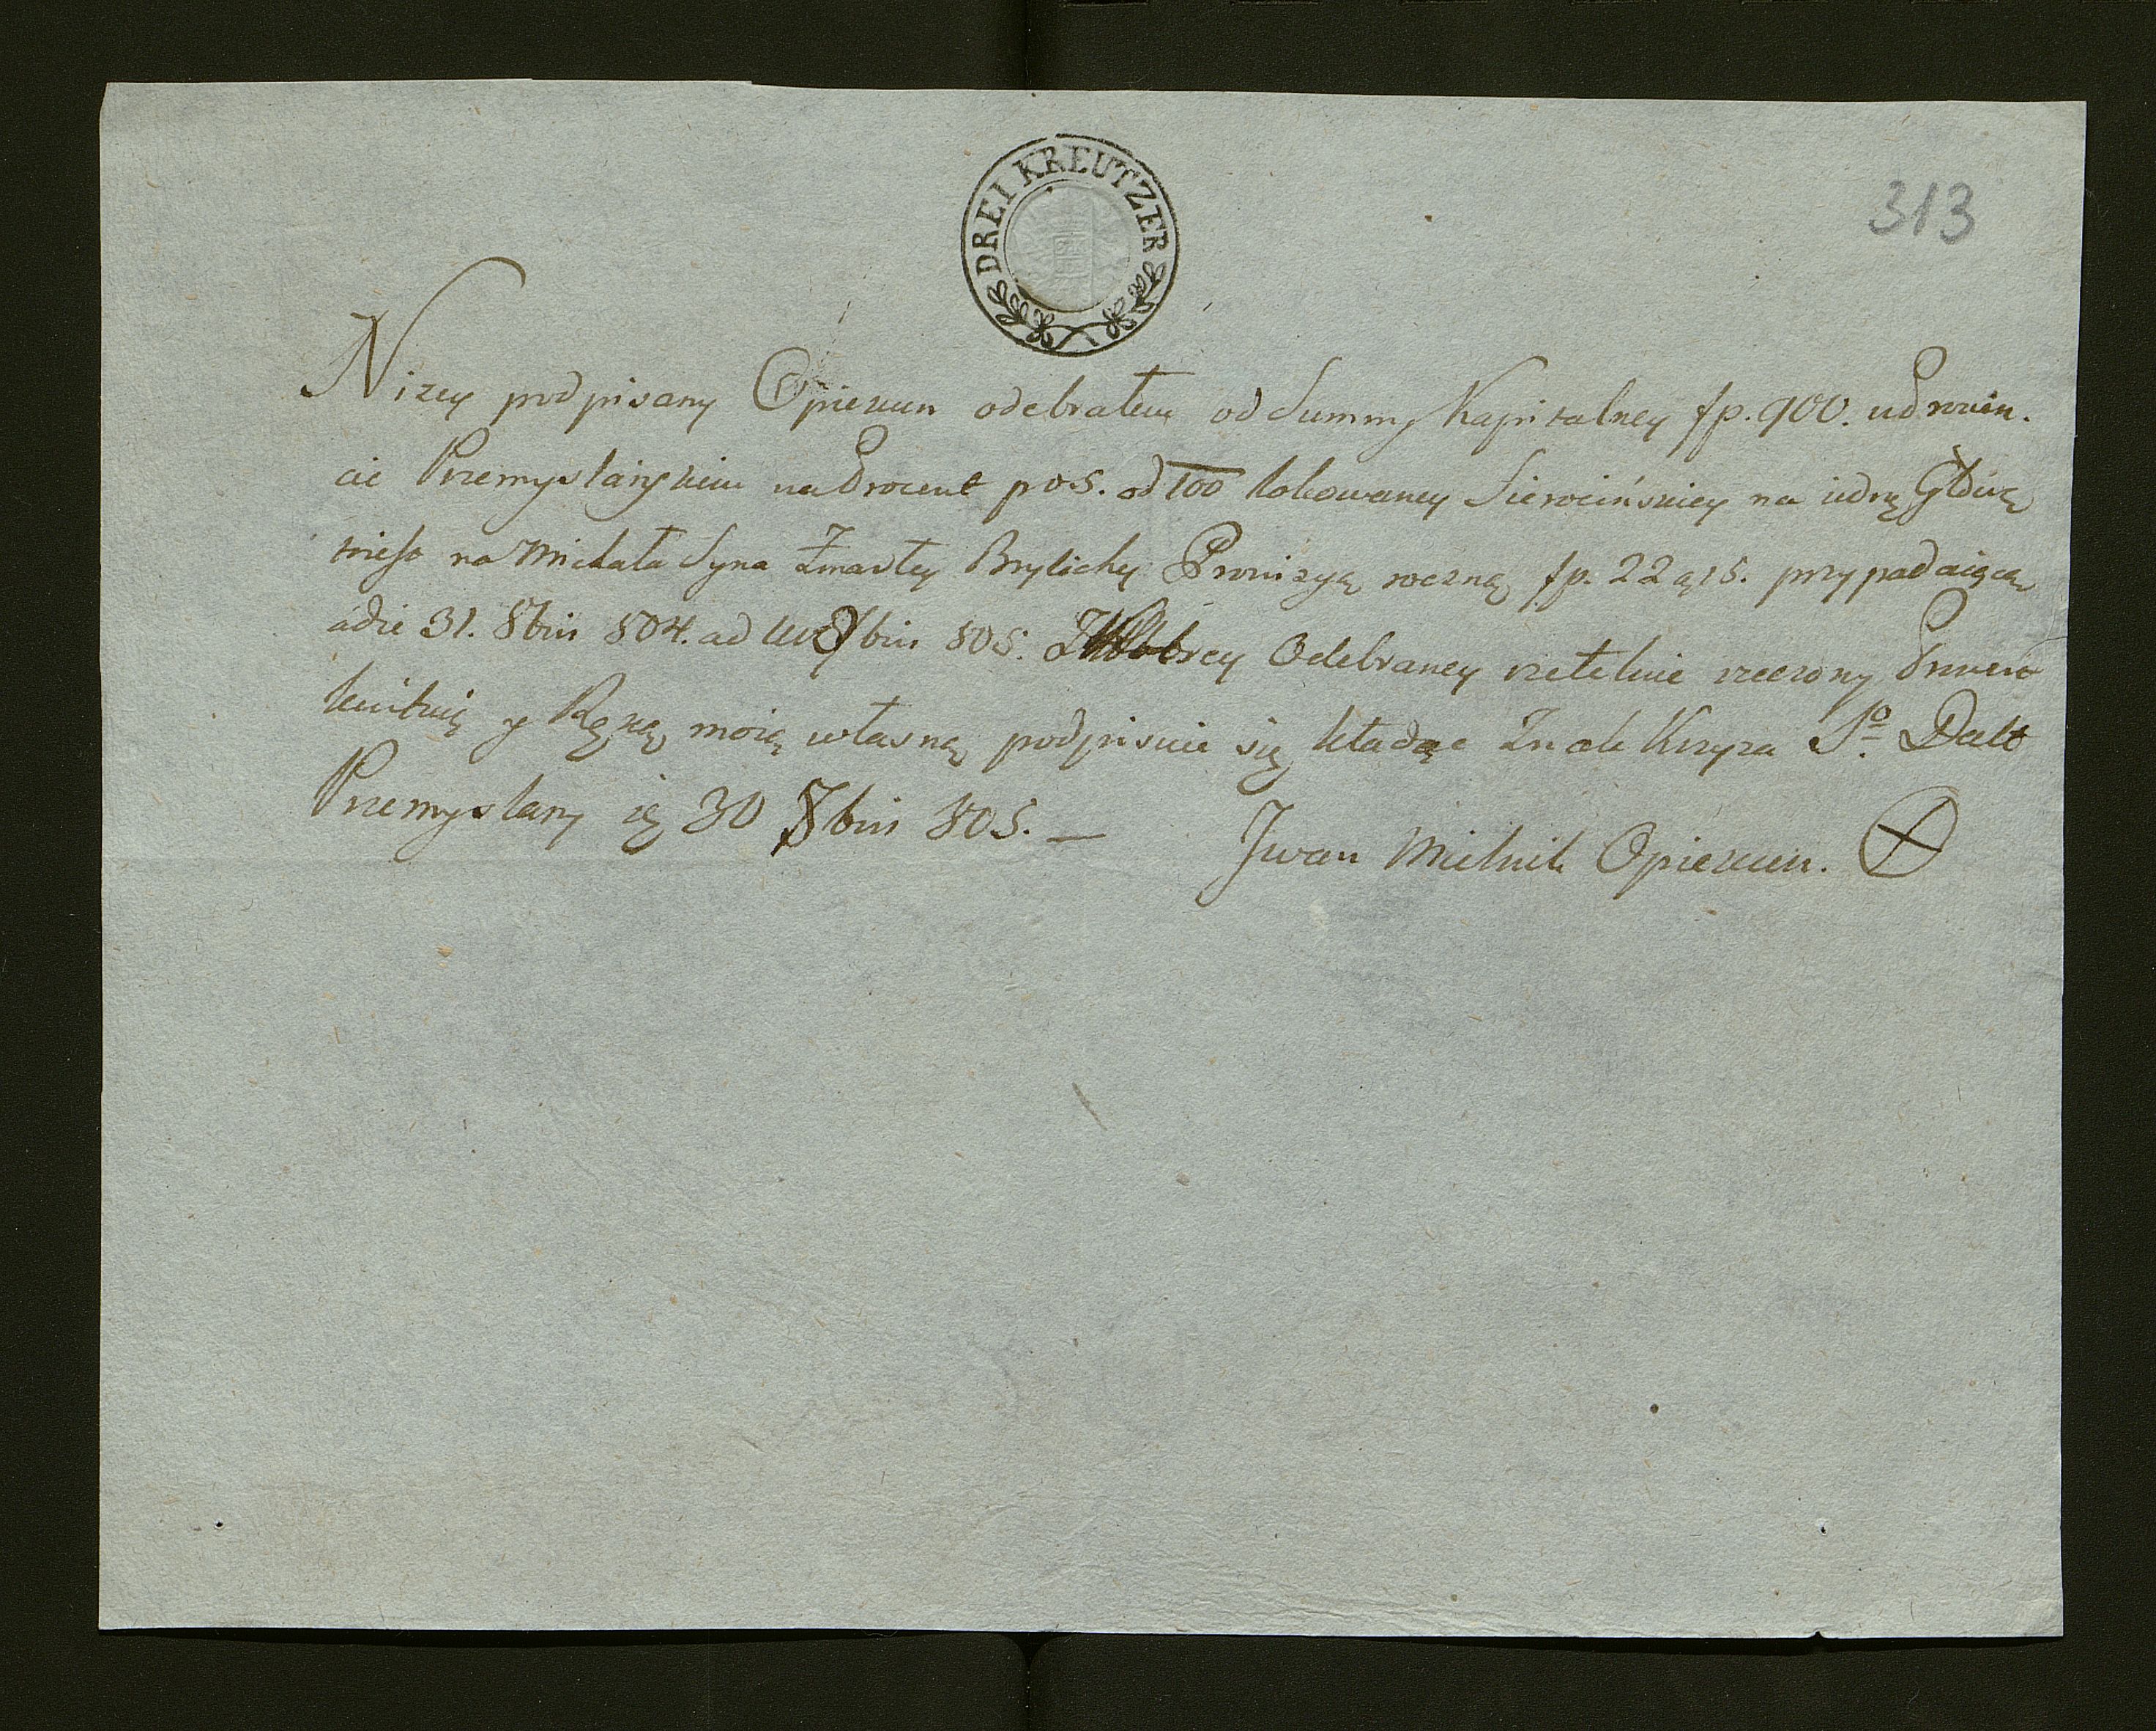 DREI KREUTZER
313
Nizey podpisany Opiekun odebrałem od Summy Kapitalney fp. 900. w
cie Przemyslańskim na Procent po 5. od 100 lokowaney Sierocińskiey na iedną Głowę
na Michała Syna Zmarłey Brylichy Prowizyą roczną fp. 22 g 15. przypadaiącą
adie 31. 8bris 804. ad 8bris 805. Odebraney rzetelnie rzeczony
kwituię y Ręką moią własną podpisuie się kładąc Znak Krzyza So. Datt
Przemyslany 30 8bris 805. —
Jwan Mielnik Opiekun.